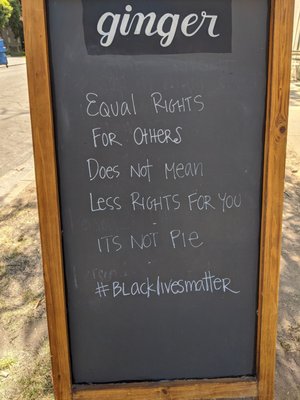 ginger
Equal Rights
For Others
Does Not Mean
Less Rights For You
ITS NOT PIE
#Blacklivesmatter